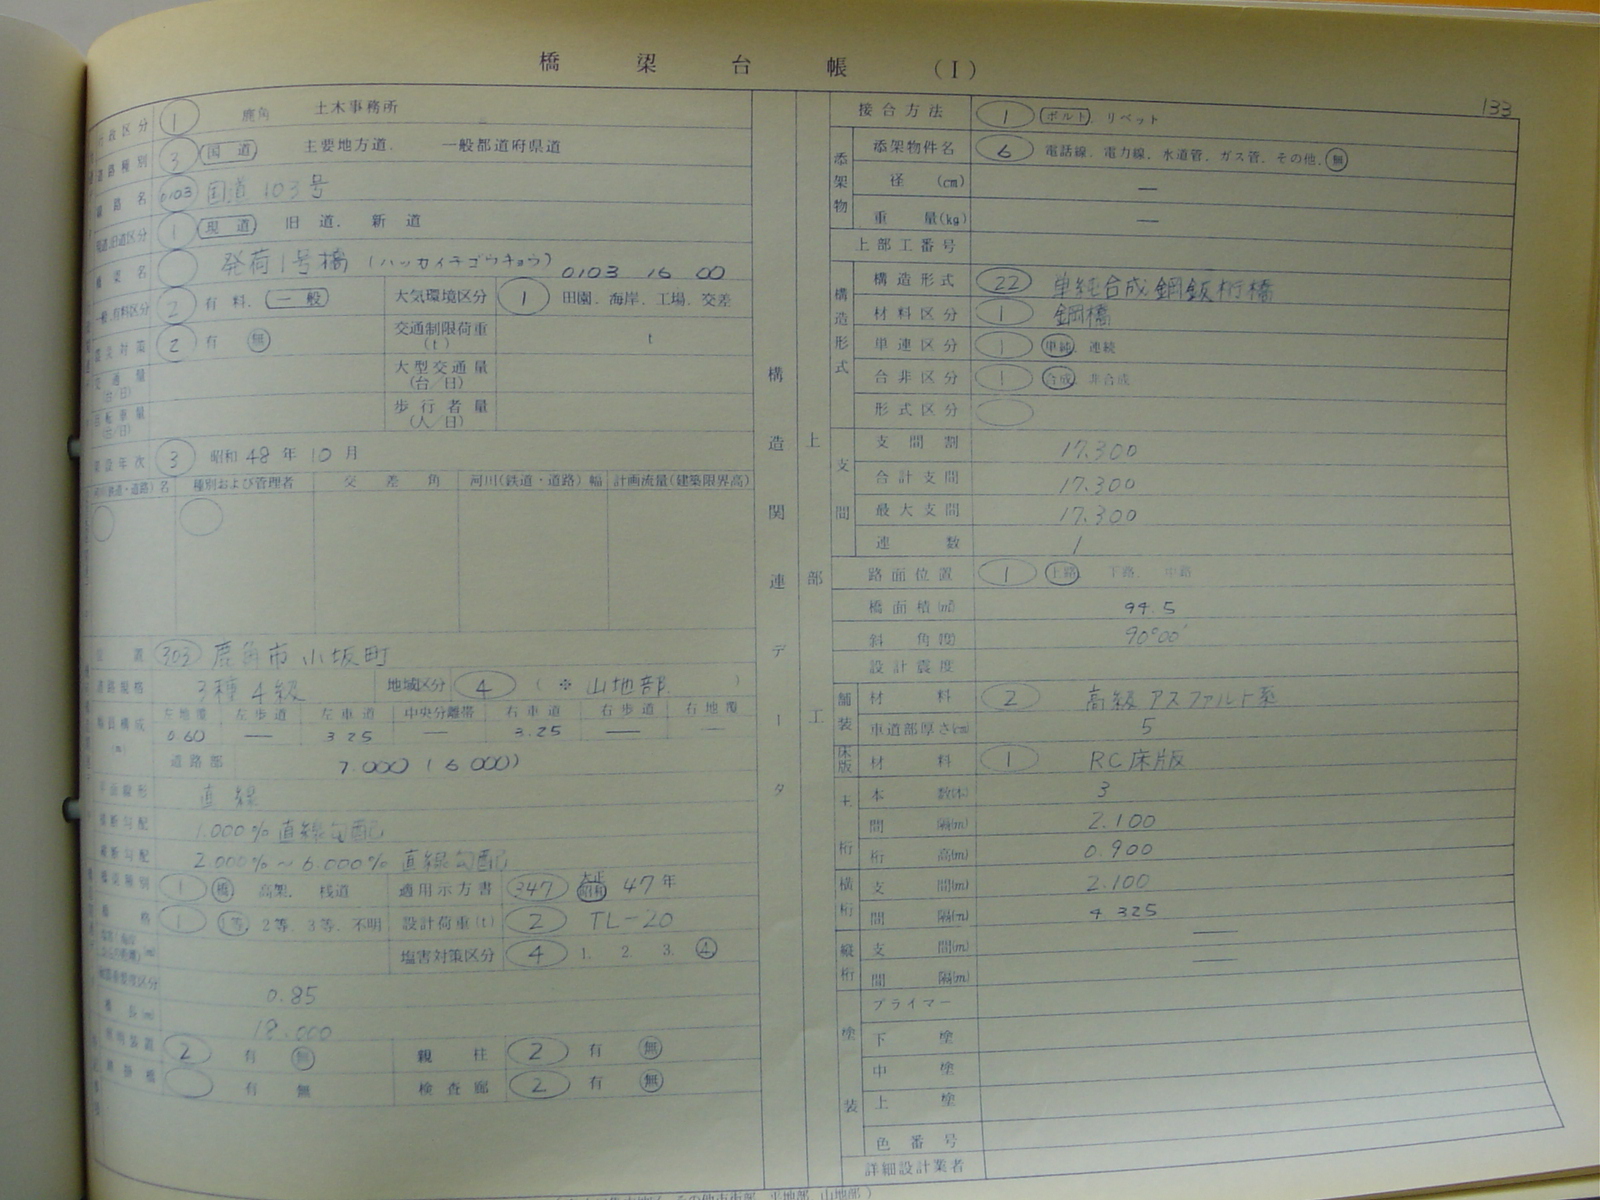 橋 梁 台 帳 (I)
133
行政区分 1 鹿角 土木事務所
道路種別 3 国道 主要地方道. 一般都道府県道
路線名 0103 国道103号
現道.旧道区分 1 現道 旧道. 新道
橋梁名 発荷1号橋 (ハッカイチゴウキョウ) 0103 16 00
一般.有料区分 2 有料. 一般 大気環境区分 1 田園. 海岸. 工場. 交差
震災対策 2 有 無 交通制限荷重(t) t
交通量(台/日) 大型交通量(台/日)
自転車量(台/日) 歩行者量(人/日)
架設年次 3 昭和 48 年 10 月
河川(鉄道・道路)名 種別および管理者 交差角 河川(鉄道・道路)幅 計画流量(建築限界高)
位置 303 鹿角市 小坂町
道路規格 3種4級 地域区分 4 ( ※ 山地部 )
幅員構成(m) 左地覆 左歩道 左車道 中央分離帯 右車道 右歩道 右地覆
0.60 — 3.25 — 3.25 — —
道路部 7.000 (6.000)
平面線形 直線
1.000% 直線勾配
2.000%~6.000% 直線勾配
橋梁種別 1 橋 高架. 桟道 適用示方書 347 大正 昭和 47年
1 1等. 2等. 3等. 不明 設計荷重(t) 2 TL-20
塩害対策区分 4 1. 2. 3. 4
0.85
橋長(m) 18.000
照明装置 2 有 無 親柱 2 有 無
有 無 検査廊 2 有 無
構造関連データ
上部工
接合方法 1 ボルト. リベット
添架物 添架物件名 6 電話線. 電力線. 水道管. ガス管. その他. 無
径 (cm) —
重量(kg) —
上部工番号
構造形式 構造形式 22 単純合成鋼鈑桁橋
材料区分 1 鋼橋
単連区分 1 単純. 連続
合非区分 1 合成. 非合成
形式区分
支間 支間割 17.300
合計支間 17.300
最大支間 17.300
連数 1
路面位置 1 上路. 下路. 中路
橋面積(㎡) 94.5
斜角度 90°00′
設計震度
舗装 材料 2 高級アスファルト系
車道部厚さ(cm) 5
床版 材料 1 RC床版
主桁 本数(本) 3
間隔(m) 2.100
桁高(m) 0.900
横桁 支間(m) 2.100
間隔(m) 4.325
縦桁 支間(m) —
間隔(m) —
塗装 プライマー
下塗
中塗
上塗
色番号
詳細設計業者